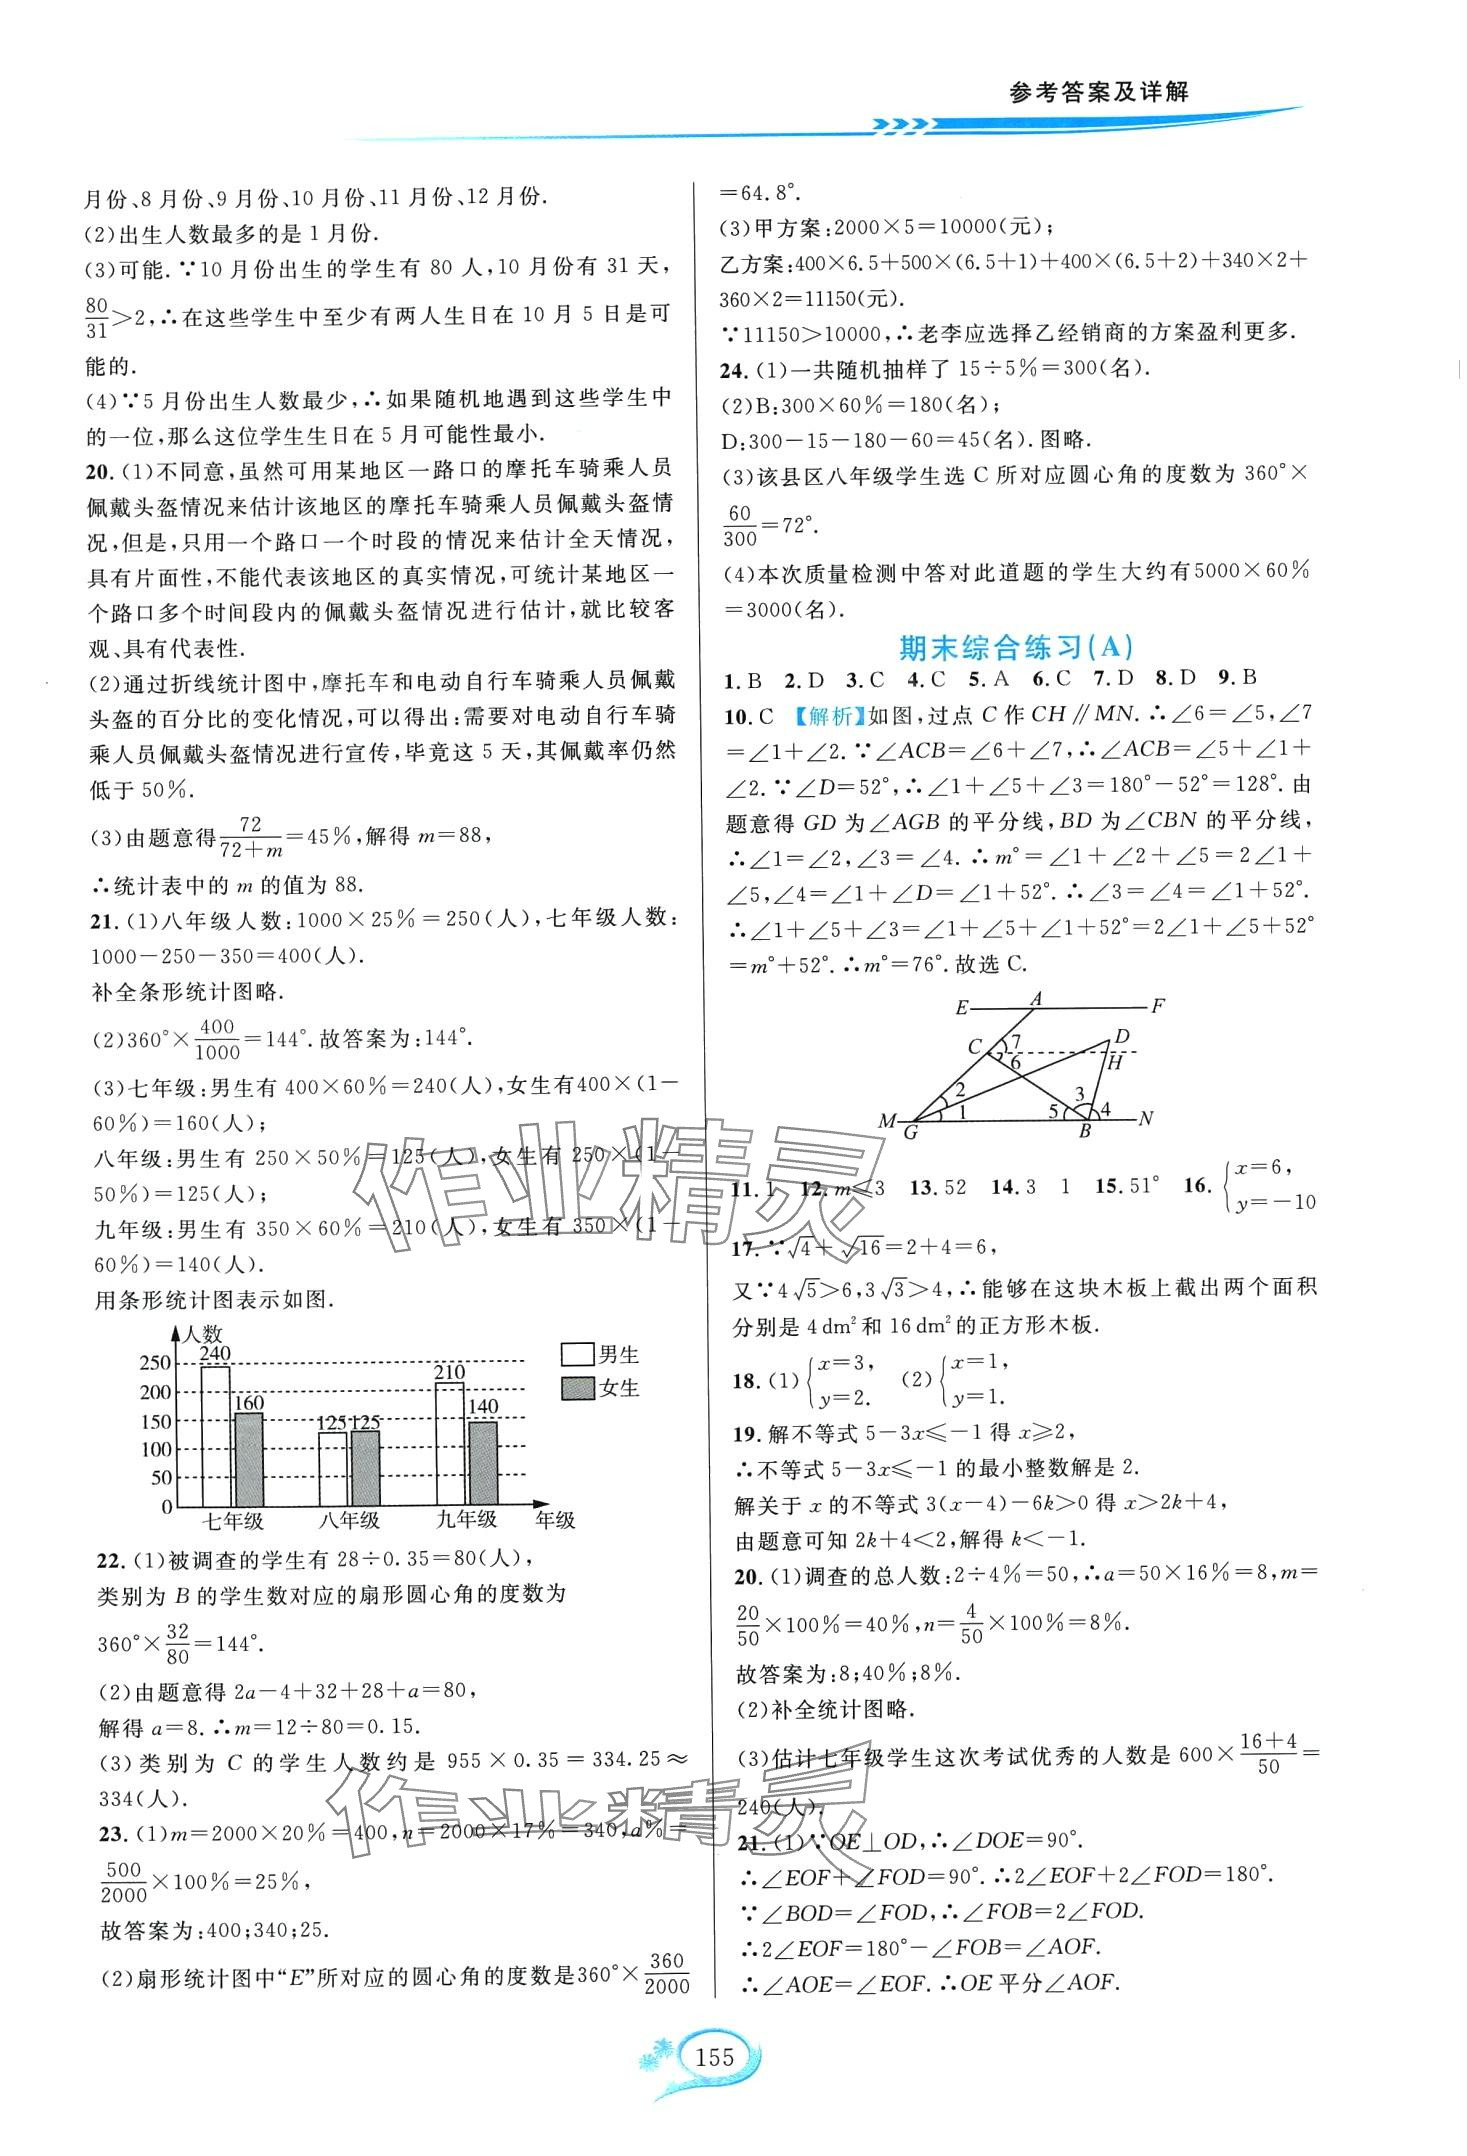 参考答案及详解
月份、8月份、9月份、10月份、11月份、12月份.
(2)出生人数最多的是1月份.
(3)可能.∵10月份出生的学生有80人,10月份有31天,
80/31>2,∴在这些学生中至少有两人生日在10月5日是可
能的.
(4)∵5月份出生人数最少,∴如果随机地遇到这些学生中
的一位,那么这位学生生日在5月可能性最小.
20.(1)不同意,虽然可用某地区一路口的摩托车骑乘人员
佩戴头盔情况来估计该地区的摩托车骑乘人员佩戴头盔情
况,但是,只用一个路口一个时段的情况来估计全天情况,
具有片面性,不能代表该地区的真实情况,可统计某地区一
个路口多个时间段内的佩戴头盔情况进行估计,就比较客
观、具有代表性.
(2)通过折线统计图中,摩托车和电动自行车骑乘人员佩戴
头盔的百分比的变化情况,可以得出:需要对电动自行车骑
乘人员佩戴头盔情况进行宣传,毕竟这5天,其佩戴率仍然
低于50%.
(3)由题意得72/(72+m)=45%,解得m=88,
∴统计表中的m的值为88.
21.(1)八年级人数:1000×25%=250(人),七年级人数:
1000-250-350=400(人).
补全条形统计图略.
(2)360°×400/1000=144°.故答案为:144°.
(3)七年级:男生有400×60%=240(人),女生有400×(1-
60%)=160(人);
八年级:男生有250×50%=125(人),女生有250×(1-
50%)=125(人);
九年级:男生有350×60%=210(人),女生有350×(1-
60%)=140(人).
用条形统计图表示如图.
人数
250
200
150
100
50
0
240
160
125
125
210
140
男生
女生
七年级 八年级 九年级 年级
22.(1)被调查的学生有28÷0.35=80(人),
类别为B的学生数对应的扇形圆心角的度数为
360°×32/80=144°.
(2)由题意得2a-4+32+28+a=80,
解得a=8.∴m=12÷80=0.15.
(3)类别为C的学生人数约是955×0.35=334.25≈
334(人).
23.(1)m=2000×20%=400,n=2000×17%=340,a%=
500/2000×100%=25%,
故答案为:400;340;25.
(2)扇形统计图中“E”所对应的圆心角的度数是360°×360/2000
=64.8°.
(3)甲方案:2000×5=10000(元);
乙方案:400×6.5+500×(6.5+1)+400×(6.5+2)+340×2+
360×2=11150(元).
∵11150>10000,∴老李应选择乙经销商的方案盈利更多.
24.(1)一共随机抽样了15÷5%=300(名).
(2)B:300×60%=180(名);
D:300-15-180-60=45(名).图略.
(3)该县区八年级学生选C所对应圆心角的度数为360°×
60/300=72°.
(4)本次质量检测中答对此道题的学生大约有5000×60%
=3000(名).
期末综合练习(A)
1.B 2.D 3.C 4.C 5.A 6.C 7.D 8.D 9.B
10.C 【解析】如图,过点C作CH∥MN.∴∠6=∠5,∠7
=∠1+∠2.∵∠ACB=∠6+∠7,∴∠ACB=∠5+∠1+
∠2.∵∠D=52°,∴∠1+∠5+∠3=180°-52°=128°.由
题意得GD为∠AGB的平分线,BD为∠CBN的平分线,
∴∠1=∠2,∠3=∠4.∴m°=∠1+∠2+∠5=2∠1+
∠5,∠4=∠1+∠D=∠1+52°.∴∠3=∠4=∠1+52°.
∴∠1+∠5+∠3=∠1+∠5+∠1+52°=2∠1+∠5+52°
=m°+52°.∴m°=76°.故选C.
E A F
C 7 6 D H
2 1 5 3 4
M G B N
11.1 12.m≤3 13.52 14.3 1 15.51° 16.{x=6,
y=-10
17.∵√4+√16=2+4=6,
又∵4√5>6,3√3>4,∴能够在这块木板上截出两个面积
分别是4 dm²和16 dm²的正方形木板.
18.(1){x=3, y=2. (2){x=1, y=1.
19.解不等式5-3x≤-1得x≥2,
∴不等式5-3x≤-1的最小整数解是2.
解关于x的不等式3(x-4)-6k>0得x>2k+4,
由题意可知2k+4<2,解得k<-1.
20.(1)调查的总人数:2÷4%=50,∴a=50×16%=8,m=
20/50×100%=40%,n=4/50×100%=8%.
故答案为:8;40%;8%.
(2)补全统计图略.
(3)估计七年级学生这次考试优秀的人数是600×(16+4)/50=
240(人).
21.(1)∵OE⊥OD,∴∠DOE=90°.
∴∠EOF+∠FOD=90°.∴2∠EOF+2∠FOD=180°.
∵∠BOD=∠FOD,∴∠FOB=2∠FOD.
∴2∠EOF=180°-∠FOB=∠AOF.
∴∠AOE=∠EOF.∴OE平分∠AOF.
作业精灵
作业精灵
155